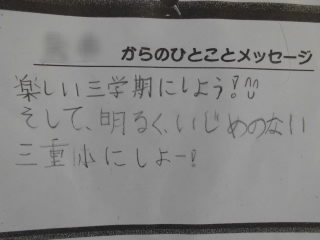 からのひとことメッセージ
楽しい三学期にしよう!
そして、明るく、いじめのない
三重小にしよー!